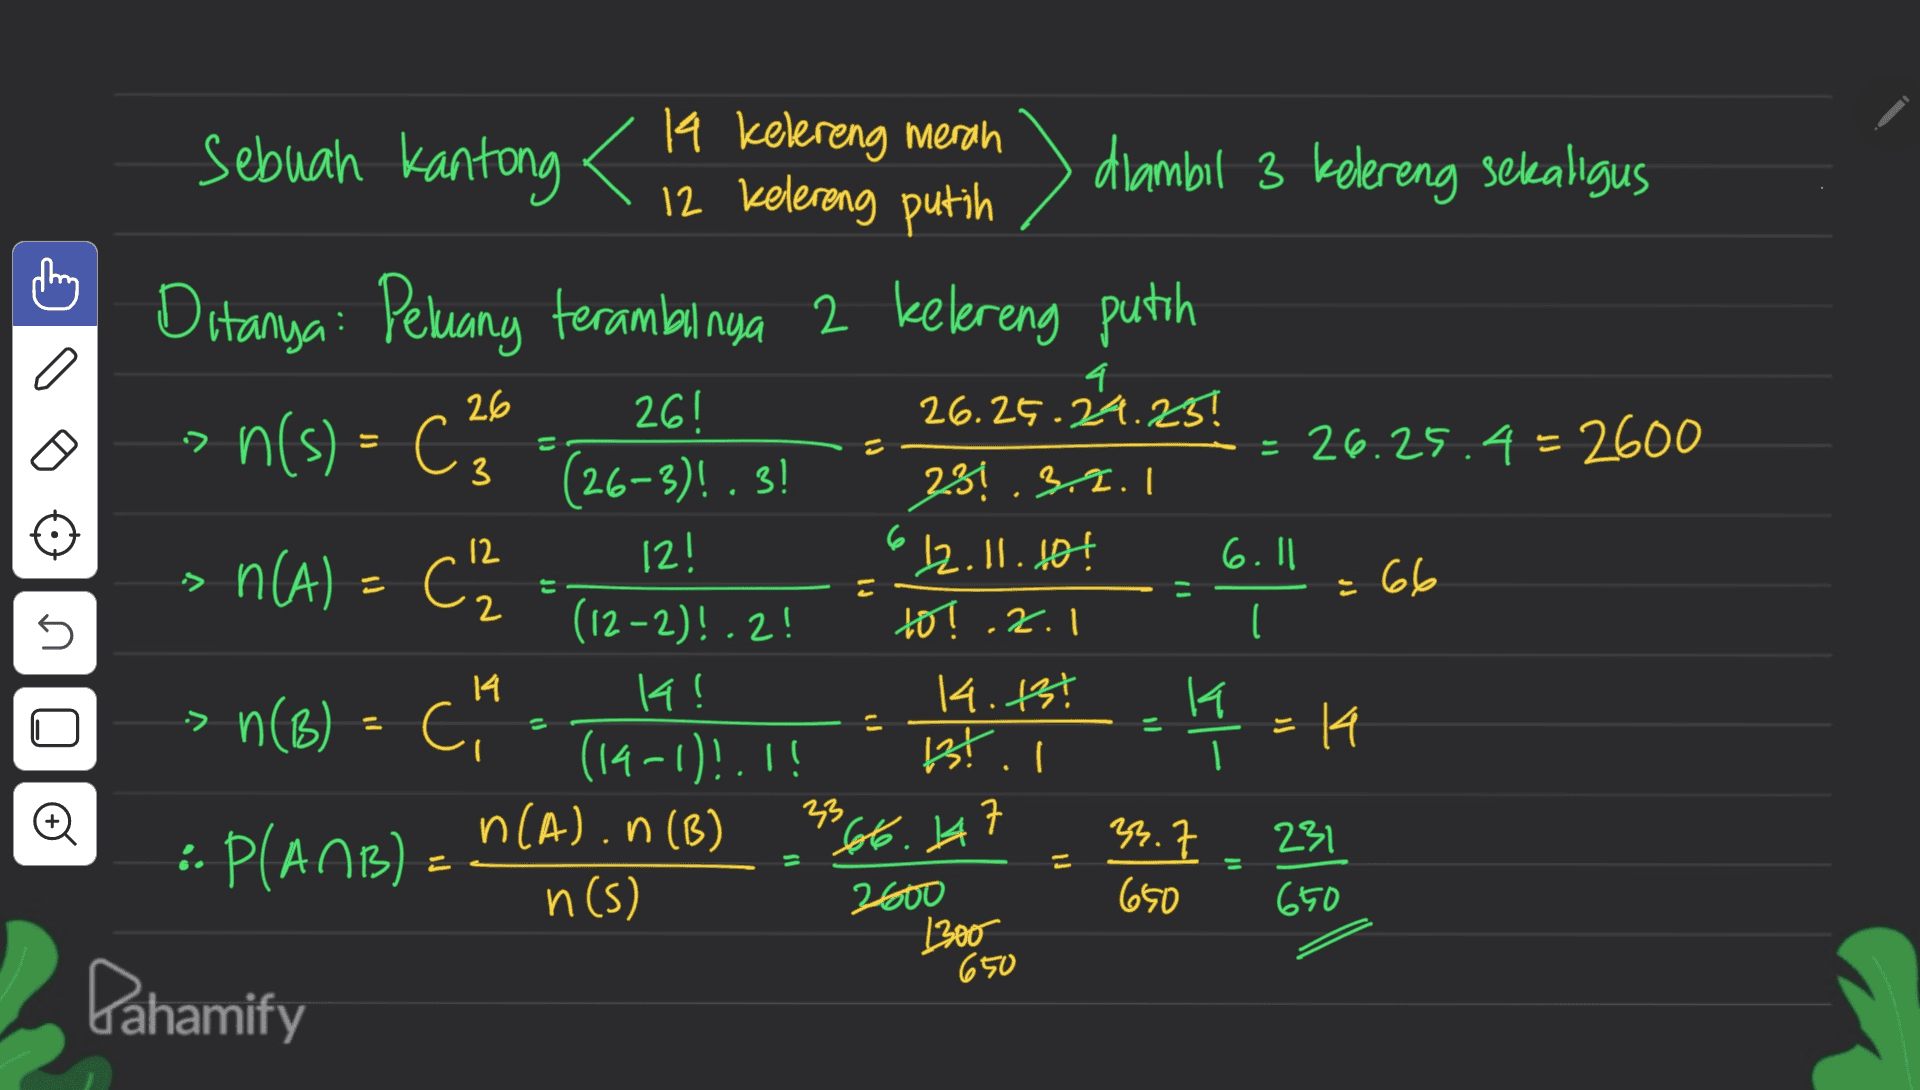 Sebuah kantong < 14 kelereng merah
12 kelereng putih > diambil 3 kelereng sekaligus
Ditanya: Peluang terambilnya 2 kelereng putih
-> n(s) = C 26 3 = 26! / (26-3)! . 3! = 26.25.24.23! / 23! . 3.2.1 = 26.25.4 = 2600
4
-> n(A) = C 12 2 = 12! / (12-2)! . 2! = 12.11.10! / 10! . 2.1 = 6.11 / 1 = 66
6
-> n(B) = C 14 1 = 14! / (14-1)! . 1! = 14.13! / 13! . 1 = 14 / 1 = 14
∴ P(A∩B) = n(A) . n(B) / n(s) = 66.14 / 2600 = 33.7 / 650 = 231 / 650
33 7
1300
650
Pahamify